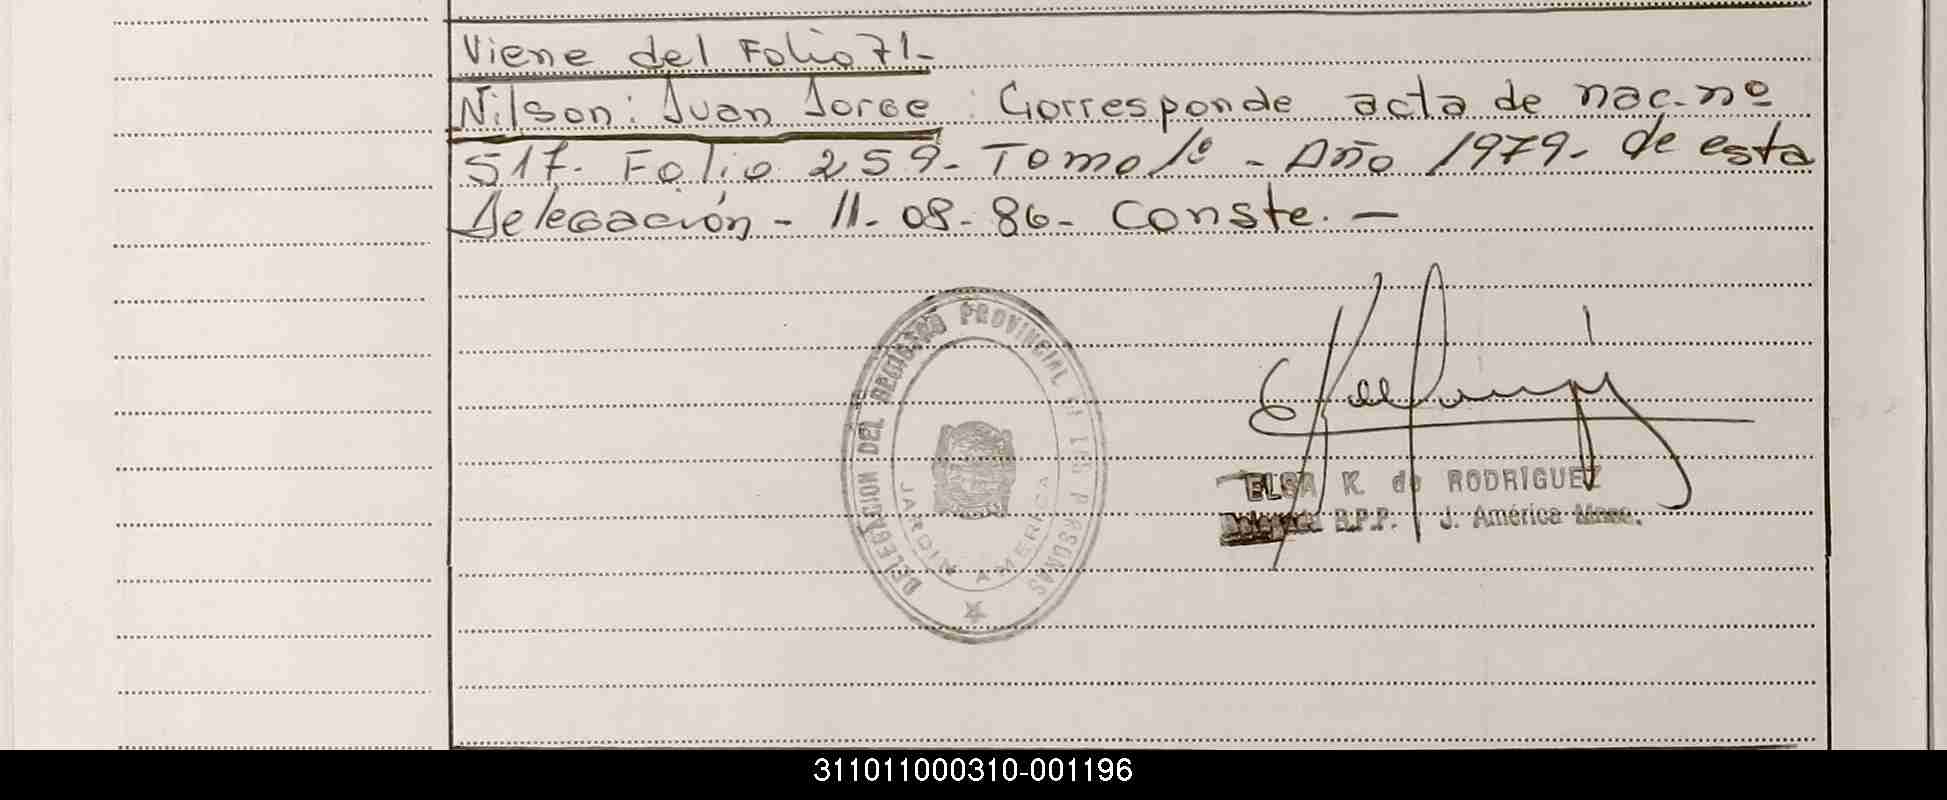 Viene del Folio 71-
Nilson: Juan Jorge: Corresponde acta de nac. nº
517. Folio 259- Tomo 1º - Año 1979- de esta
Delegación - 11-08-86- Conste. —
DELEGACION DEL REGISTRO PROVINCIAL DE LAS PERSONAS
JARDIN AMERICA
ELSA K. de RODRIGUEZ
Delegada R.P.P. J. América Mnes.
311011000310-001196